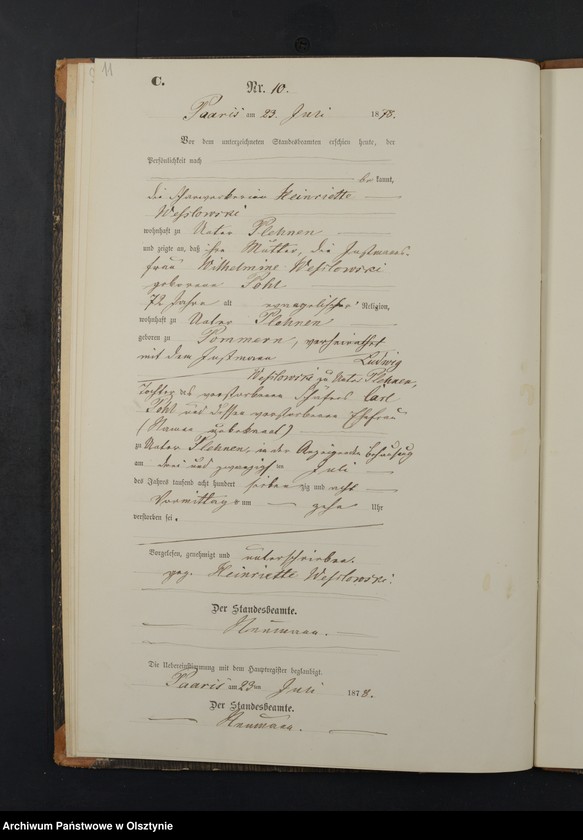 11
C.
Nr. 10.
Paaris am 23. Juli 1878.
Vor dem unterzeichneten Standesbeamten erschien heute, der
Persönlichkeit nach
bekannt,
die Heinriette
Wesslowski
wohnhaft zu Unter Plehnen
und zeigte an, daß ihre Mutter, die Instmanns-
frau Wilhelmine Wesslowski
geborene Pohl
72 Jahre alt evangelischer Religion,
wohnhaft zu Unter Plehnen
geboren zu Pommern, verheirathet
mit dem Instmann Ludwig
Wesslowski zu Unter Plehnen,
Tochter des verstorbenen Schäfers Carl
Pohl und dessen verstorbenen Ehefrau
(Namen unbekannt)
zu Unter Plehnen, in der Behausung
am drei und zwanzigsten Juli
des Jahres tausend acht hundert siebenzig und acht
Vormittags um zehn Uhr
verstorben sei.
Vorgelesen, genehmigt und unterschrieben.
gez. Heinriette Wesslowski.
Der Standesbeamte.
Naumann.
Die Uebereinstimmung mit dem Hauptregister beglaubigt.
Paaris am 23ten Juli 1878.
Der Standesbeamte.
Naumann.
Archiwum Państwowe w Olsztynie